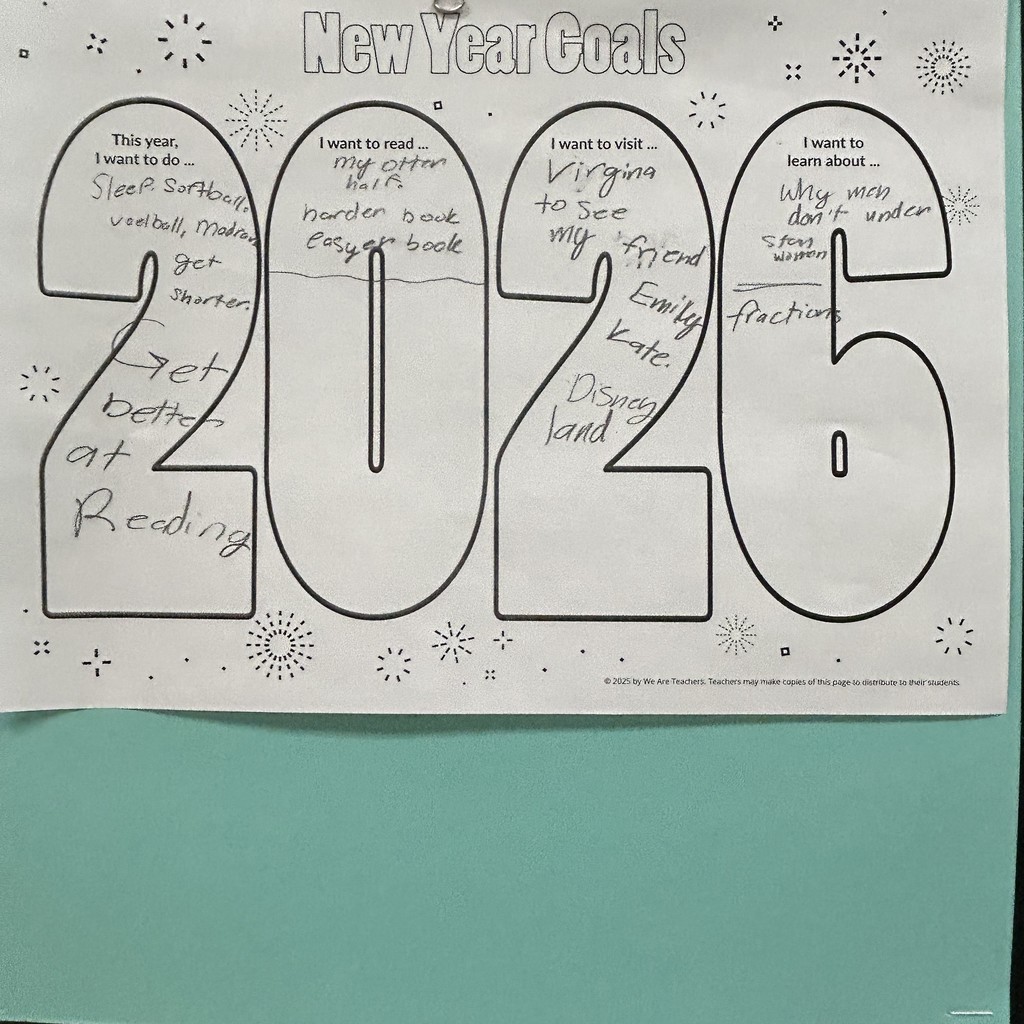 New Year Goals
This year,
I want to do ...
Sleep. Softball.
get
shorter.
Get
better
at
Reading
I want to read ...
my otter
half.
harder book
easyer book
I want to visit ...
Virgina
to see
my friend
Emily
Kate.
Disney
land
I want to
learn about ...
why men
don't under
stan
women
fractions
© 2025 by We Are Teachers. Teachers may make copies of this page to distribute to their students.